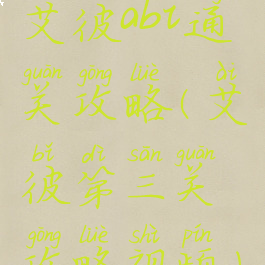 艾彼abi通
guān gōng lüè ài
关攻略(艾
bǐ dì sān guān
彼第三关
gōng lüè shì pín
攻略视频)